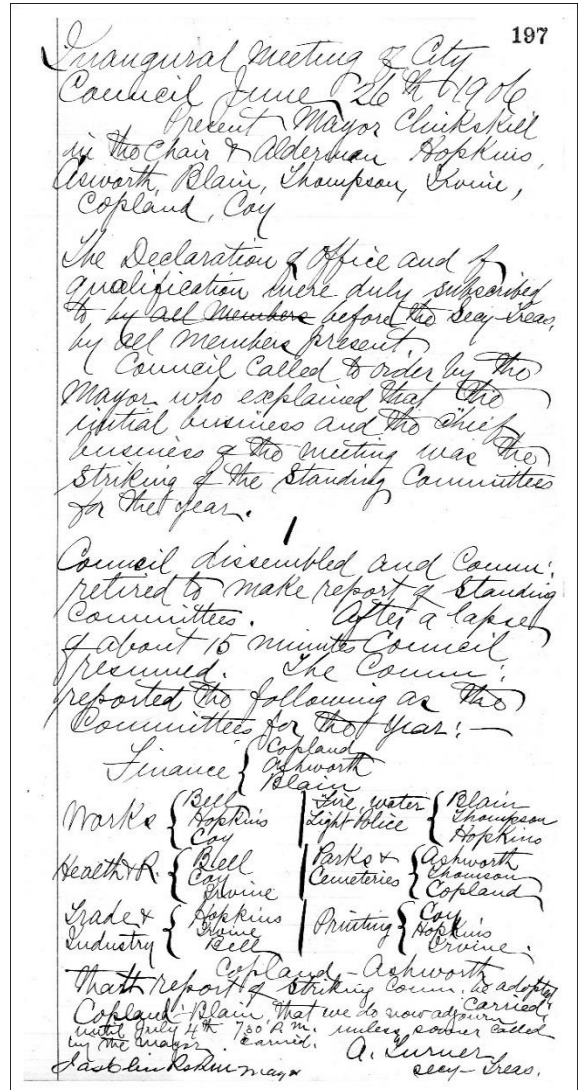 197
Inaugural Meeting of City
Council June 26th 1906
Present Mayor Clinkskill
in the Chair & Alderman Hopkins,
Asworth, Blain, Thompson, Irvine,
Copland, Coy
The Declaration of Office and of
qualification were duly subscribed
to by all Members before the Secy-Treas,
by all members present.
Council Called to order by the
Mayor who explained that the
initial business and the chief
business of the meeting was the
Striking of the Standing Committees
for the year.
Council dissembled and Comm:
retired to make report of Standing
Committees. After a lapse
of about 15 minutes Council
resumed. The Comm:
reported the following as the
Committees for the Year:—
Finance { Copland
Ashworth
Blain
Works { Bell
Hopkins
Coy
Fire, water
Light Police { Blain
Thompson
Hopkins
Health & R. { Bell
Coy
Irvine
Parks &
Cemeteries { Ashworth
Thomson
Copland
Trade &
Industry { Hopkins
Irvine
Bell
Printing { Coy
Hopkins
Irvine.
Copland - Ashworth
That report of striking comm. be adopted
Carried.
Copland - Blain, That we do now adjourn
until July 4th 7.30 P.M. unless sooner called
by the mayor. Carried.
A. Turner
Secy-Treas.
Jas Clinkskill Mayor